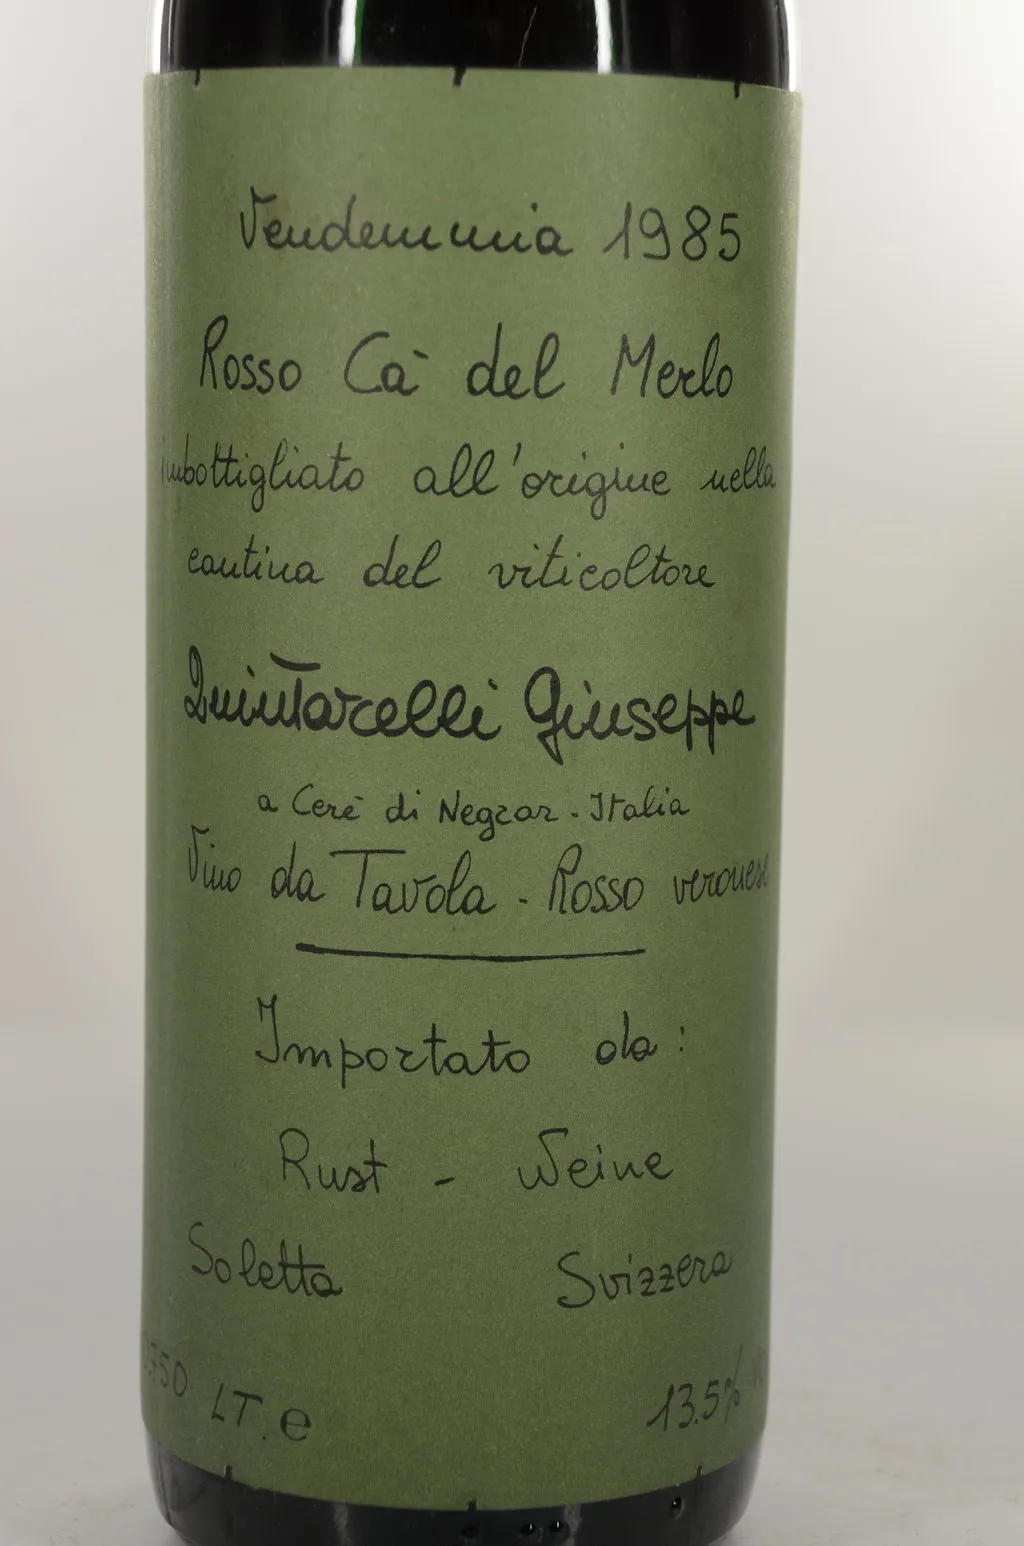 Vendemmia 1985
Rosso Cà del Merlo
imbottigliato all'origine nella
cantina del viticoltore
Quintarelli Giuseppe
a Cerè di Negrar - Italia
Vino da Tavola - Rosso veronese
Importato da:
Rust - Weine
Soletta Svizzera
0.750 LT. e 13.5%